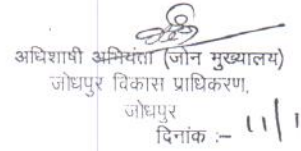 अधिशाषी अभियंता (जोन मुख्यालय)
जोधपुर विकास प्राधिकरण,
जोधपुर
दिनांक :– 11/1